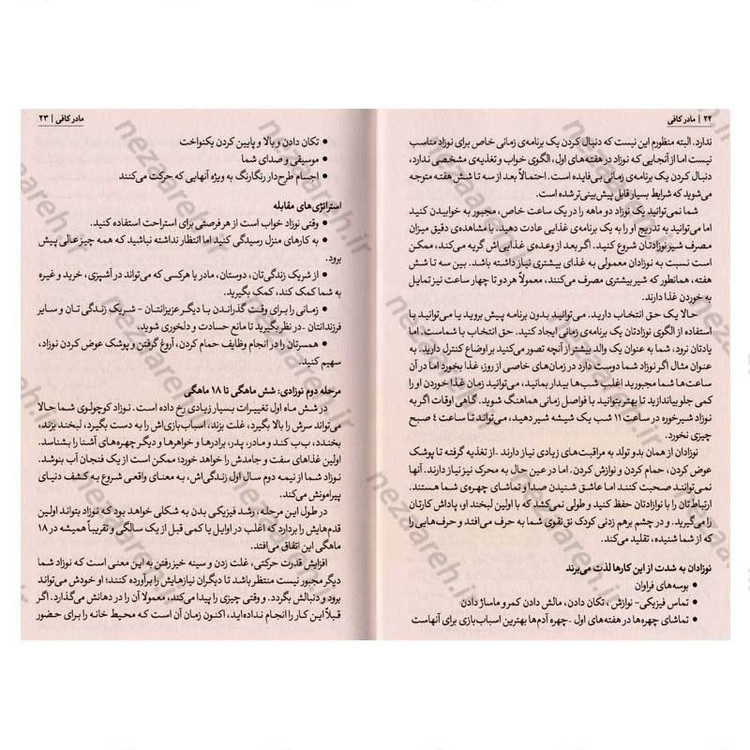 ۲۲ | مادر کافی
ندارد. البته منظورم این نیست که دنبال کردن یک برنامه‌ی زمانی خاص برای نوزاد مناسب
نیست اما از آنجایی که نوزاد در هفته‌های اول، الگوی خواب و تغذیه‌ی مشخصی ندارد،
دنبال کردن یک برنامه‌ی زمانی بی‌فایده است. احتمالاً بعد از سه تا شش هفته متوجه
می‌شوید که شرایط بسیار قابل پیش‌بینی‌تر شده است.
شما نمی‌توانید یک نوزاد دو ماهه را در یک ساعت خاص، مجبور به خوابیدن کنید
اما می‌توانید به تدریج او را به یک برنامه‌ی غذایی عادت دهید. با مشاهده‌ی دقیق میزان
مصرف شیر نوزادتان شروع کنید. اگر بعد از وعده‌ی غذایی‌اش گریه می‌کند، ممکن
است نسبت به نوزادان معمولی به غذای بیشتری نیاز داشته باشد. بین سه تا شش
هفته، همانطور که شیر بیشتری مصرف می‌کنند، معمولاً هر دو تا چهار ساعت نیز تمایل
به خوردن غذا دارند.
حالا یک حق انتخاب دارید. می‌توانید بدون برنامه پیش بروید یا می‌توانید با
استفاده از الگوی نوزادتان یک برنامه‌ی زمانی ایجاد کنید. حق انتخاب با شماست. اما
یادتان نرود، شما به عنوان یک والد بیشتر از آنچه تصور می‌کنید بر اوضاع کنترل دارید. به
عنوان مثال اگر نوزاد شما دوست دارد در زمان‌های خاصی از روز، غذا بخورد اما در آن
ساعت‌ها شما مجبورید اغلب شب‌ها بیدار بمانید، می‌توانید زمان غذا خوردن او را
کمی جلو بیاندازید تا بهتر بتوانید با فواصل زمانی هماهنگ شوید. گاهی اوقات اگر به
نوزاد شیرخوره در ساعت ۱۱ شب یک شیشه شیر دهید، می‌تواند تا ساعت ۴ صبح
چیزی نخورد.
نوزادان از همان بدو تولد به مراقبت‌های زیادی نیاز دارند. -از تغذیه گرفته تا پوشک
عوض کردن، حمام کردن و نوازش کردن. اما در عین حال به محرک نیز نیاز دارند. آنها
نمی‌توانند صحبت کنند اما عاشق شنیدن صدا و تماشای چهره‌ی شما هستند.
ارتباط‌تان را با نوزادتان حفظ کنید و طولی نمی‌کشد که با اولین لبخند او، پاداش کارتان
را می‌گیرید. و در چشم برهم زدنی کودک نق‌نقوی شما به حرف می‌افتد و حرف‌هایی را
که از شما شنیده، تقلید می‌کند.
نوزادان به شدت از این کارها لذت می‌برند
• بوسه‌های فراوان
• تماس فیزیکی- نوازش، تکان دادن، مالش دادن کمر و ماساژ دادن
• تماشای چهره‌ها در هفته‌های اول -چهره آدم‌ها بهترین اسباب‌بازی برای آنهاست
مادر کافی | ۲۳
• تکان دادن و بالا و پایین کردن یکنواخت
• موسیقی و صدای شما
• اجسام طرح‌دار رنگارنگ به ویژه آنهایی که حرکت می‌کنند
استراتژی‌های مقابله
• وقتی نوزاد خواب است از هر فرصتی برای استراحت استفاده کنید.
• به کارهای منزل رسیدگی کنید اما انتظار نداشته نباشید که همه چیز عالی پیش
برود.
• از شریک زندگی‌تان، دوستان، مادر یا هرکسی که می‌تواند در آشپزی، خرید و غیره
به شما کمک کند، کمک بگیرید.
• زمانی را برای وقت گذراندن با دیگر عزیزانتان- شریک زندگی‌تان و سایر
فرزندانتان -در نظر بگیرید تا مانع حسادت و دلخوری شوید.
• همسرتان را در انجام وظایف حمام کردن، آروغ گرفتن و پوشک عوض کردن نوزاد،
سهیم کنید.
مرحله دوم نوزادی: شش ماهگی تا ۱۸ ماهگی
در شش ماه اول تغییرات بسیار زیادی رخ داده است. نوزاد کوچولوی شما حالا
می‌تواند سرش را بالا بگیرد، غلت بزند، اسباب‌بازی‌اش را به دست بگیرد، لبخند بزند،
بخندد، ب‌ب کند و مادر، پدر، برادرها و خواهرها و دیگر چهره‌های آشنا را بشناسد.
اولین غذاهای سفت و جامدش را خواهد خورد؛ ممکن است از یک فنجان آب بنوشد.
نوزاد شما از نیمه دوم سال اول زندگی‌اش، به معنای واقعی شروع به کشف دنیای
پیرامونش می‌کند.
در طول این مرحله، رشد فیزیکی بدن به شکلی خواهد بود که نوزاد بتواند اولین
قدم‌هایش را بردارد که اغلب در اوایل یا کمی قبل از یک سالگی و تقریباً همیشه در ۱۸
ماهگی این اتفاق می‌افتد.
افزایش قدرت حرکتی، غلت زدن و سینه خیز رفتن به این معنی است که نوزاد شما
دیگر مجبور نیست منتظر باشد تا دیگران نیازهایش را برآورده کنند؛ او خودش می‌تواند
برود و دنبالش بگردد. و وقتی چیزی را پیدا می‌کند، معمولاً آن را در دهانش می‌گذارد. اگر
قبلاً این کار را انجام نداده‌اید، اکنون زمان آن است که محیط خانه را برای حضور
nezaareh.ir